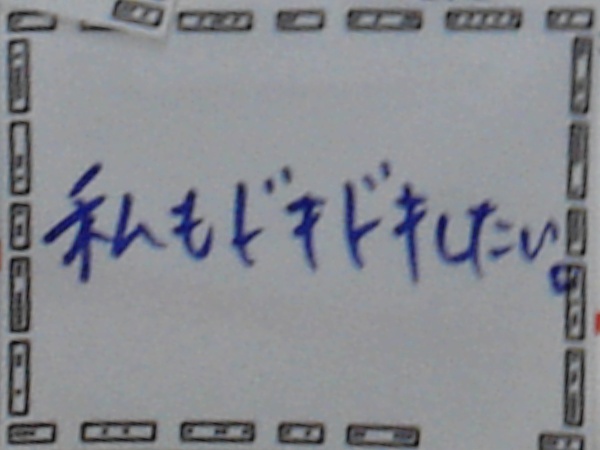 私もドキドキしたい。